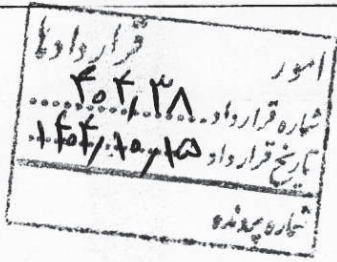 امور قراردادها
شماره قرارداد ۴۰۴٫۳۸
تاریخ قرارداد ۱۴۰۴٫۱۰٫۱۵
شماره پرونده